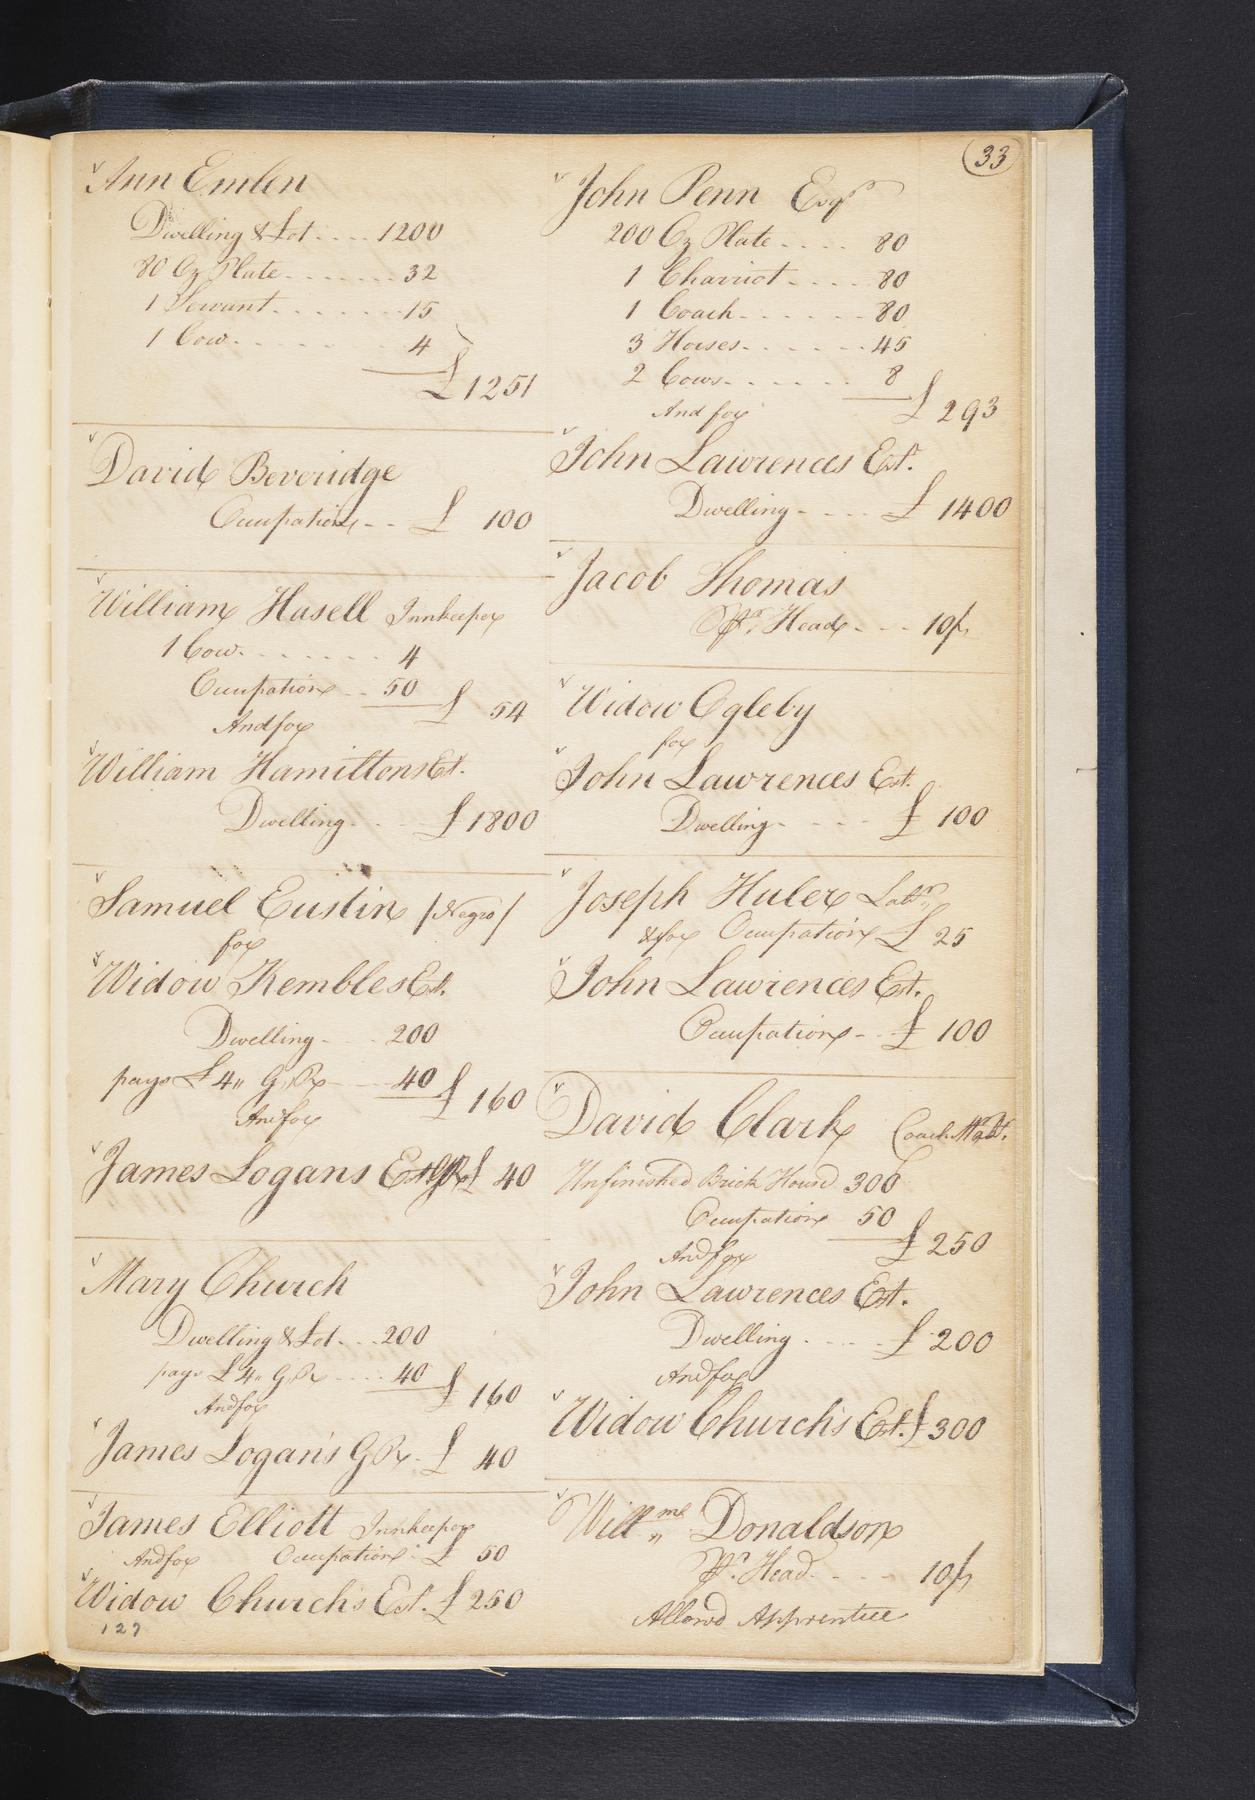 33
Ann Emlen
Dwelling & Lot .... 1200
80 Oz Plate ....... 32
1 Servant ....... 15
1 Cow ....... 4
£ 1251
David Beveridge
Occupation -- £ 100
William Hasell Innkeeper
1 Cow ....... 4
Occupation -- 50 £ 54
And for
William Hamiltons Est.
Dwelling ... £ 1800
Samuel Eustin / Negro /
for
Widow Kembles Est.
Dwelling --- 200
pays £ 4 " G. R --- 40 £ 160
And for
James Logans Est G R £ 40
Mary Church
Dwelling & Lot ... 200
pays £ 4 " G. R .... 40 £ 160
And for
James Logan's G R . £ 40
James Elliott Innkeeper
And for Occupation £ 50
Widow Church's Est. £ 250
127
John Penn Esqr
200 Oz Plate .... 80
1 Charriot .... 80
1 Coach ...... 80
3 Horses ...... 45
2 Cows ...... 8 £ 293
And for
John Lawrences Est.
Dwelling .... £ 1400
Jacob Thomas
Pr. Head --- 10/
Widow Ogleby
for
John Lawrences Est.
Dwelling .... £ 100
Joseph Huler Labr
& for Occupation £ 25
John Lawrences Est.
Occupation -- £ 100
David Clark Coach
Unfinished Brick House 300
Occupation 50 £ 250
And for
John Lawrences Est.
Dwelling ..... £ 200
And for
Widow Church's Est. £ 300
Willm Donaldson
Pr. Head .... 10/
Allowd Apprentice